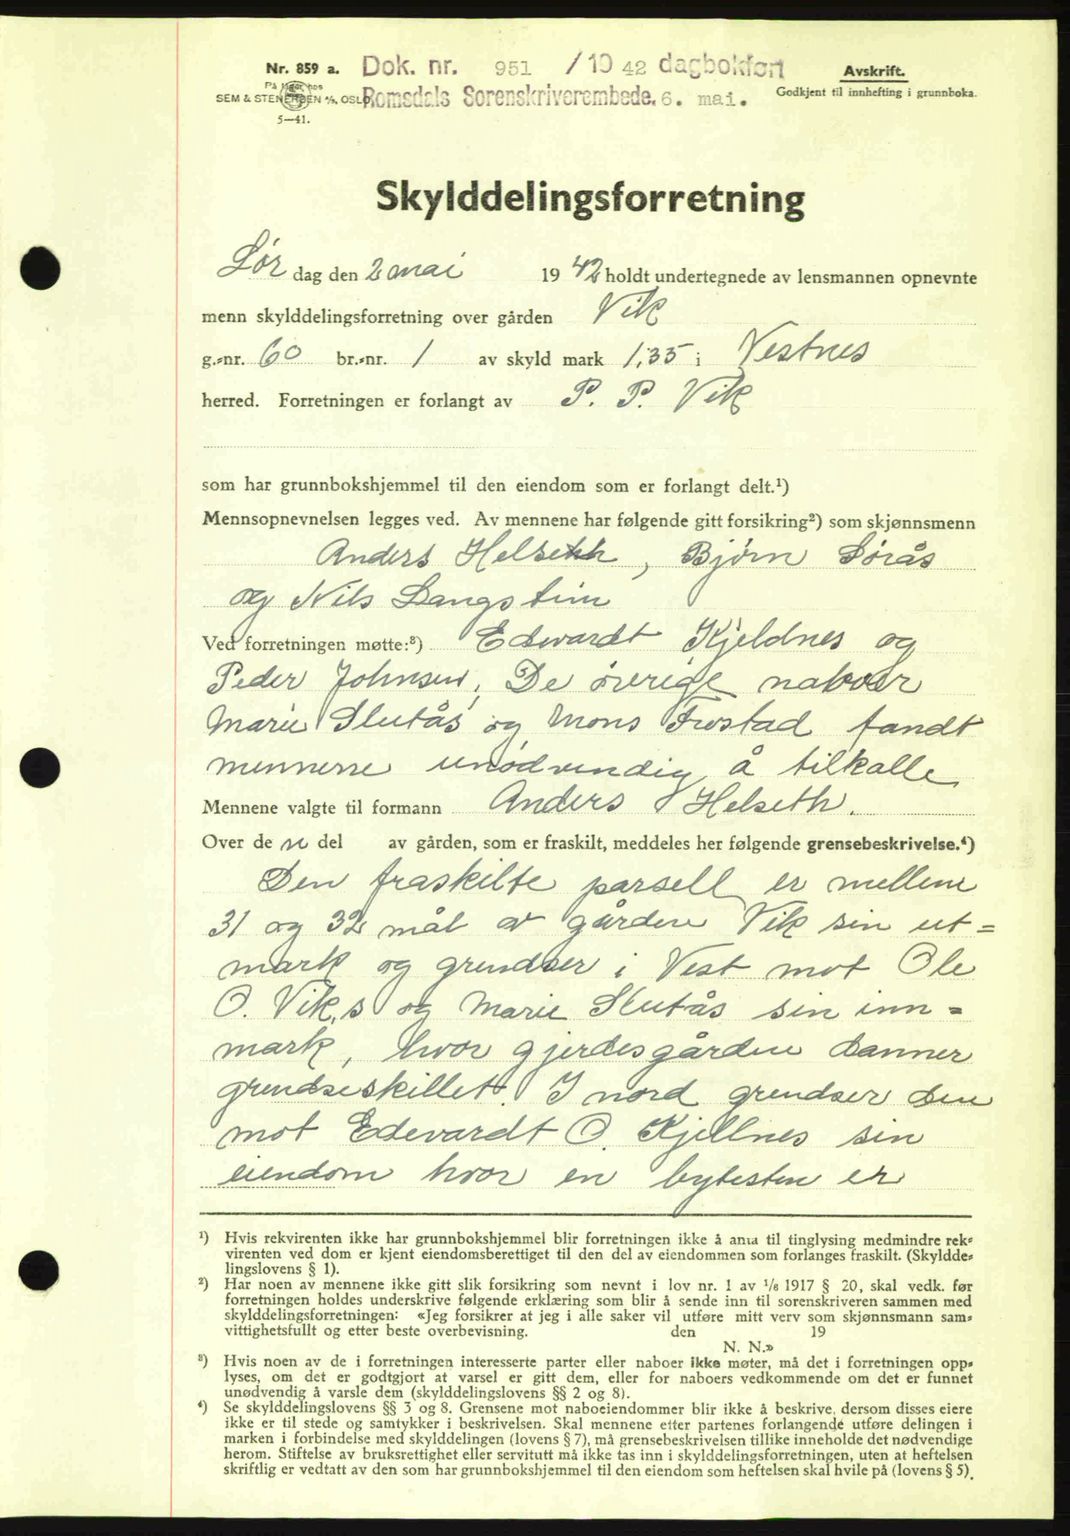 Nr. 859 a. Dok. nr. 951 /19 42 dagbokført Avskrift.
På lager hos
SEM & STENERSEN A/S, OSLO. Romsdals Sorenskriverembede. 6. mai. Godkjent til innhefting i grunnboka.
5—41.
Skylddelingsforretning
Lør dag den 2 mai 19 42 holdt undertegnede av lensmannen opnevnte
menn skylddelingsforretning over gården Vik
g.-nr. 60 br.-nr. 1 av skyld mark 1,35 i Vestnes
herred. Forretningen er forlangt av P. P. Vik
som har grunnbokshjemmel til den eiendom som er forlangt delt.¹)
Mennsopnevnelsen legges ved. Av mennene har følgende gitt forsikring²) som skjønnsmenn
Anders Helseth, Bjørn Sørås
og Nils Langstein
Ved forretningen møtte:³) Edevardt Kjeldnes og
Peder Johnsen, De øvrige naboer
Marie Slutås og Mons Frostad fandt
mennene unødvendig å tilkalle
Mennene valgte til formann Anders Helseth.
Over de n del av gården, som er fraskilt, meddeles her følgende grensebeskrivelse.⁴)
Den fraskilte parsell er mellem
31 og 32 mål av gården Vik sin ut=
mark og grendser i Vest mot Ole
O. Vik,s og Marie Slutås sin inn=
mark, hvor gjerdesgården danner
grendseskillet. I nord grendser den
mot Edevardt O. Kjellnes sin
eiendom hvor en bytesten er
¹) Hvis rekvirenten ikke har grunnbokshjemmel blir forretningen ikke å anta til tinglysing medmindre rek-
virenten ved dom er kjent eiendomsberettiget til den del av eiendommen som forlanges fraskilt. (Skyldde-
lingslovens § 1).
²) Har noen av mennene ikke gitt slik forsikring som nevnt i lov nr. 1 av ¹/₈ 1917 § 20, skal vedk. før
forretningen holdes underskrive følgende erklæring som blir å sende inn til sorenskriveren sammen med
skylddelingsforretningen: «Jeg forsikrer at jeg i alle saker vil utføre mitt verv som skjønnsmann sam-
vittighetsfullt og etter beste overbevisning. den 19
N. N.»
³) Hvis noen av de i forretningen interesserte parter eller naboer ikke møter, må det i forretningen opp-
lyses, om det er godtgjort at varsel er gitt dem, eller for naboers vedkommende om det er funnet
unødvendig å varsle dem (skylddelingslovens §§ 2 og 8).
⁴) Se skylddelingslovens §§ 3 og 8. Grensene mot naboeiendommer blir ikke å beskrive, dersom disses eiere
ikke er til stede og samtykker i beskrivelsen. Skal mennene etter partenes forlangende utføre delingen i
marken i forbindelse med skylddelingen (lovens § 7), må grensebeskrivelsen tillike inneholde det nødvendige
herom. Stiftelse av bruksrettighet eller servitutt må ikke tas inn i skylddelingsforretningen, uten at heftelsen
skriftlig er vedtatt av den som har grunnbokshjemmel til den eiendom som heftelsen skal hvile på (lovens § 5).